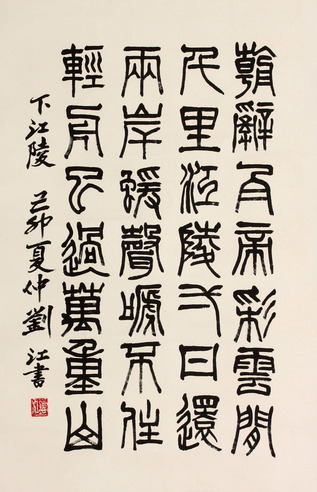 朝辭白帝彩雲間
千里江陵一日還
兩岸猨聲嗁不住
輕舟已過萬重山
下江陵 己卯夏仲劉江書